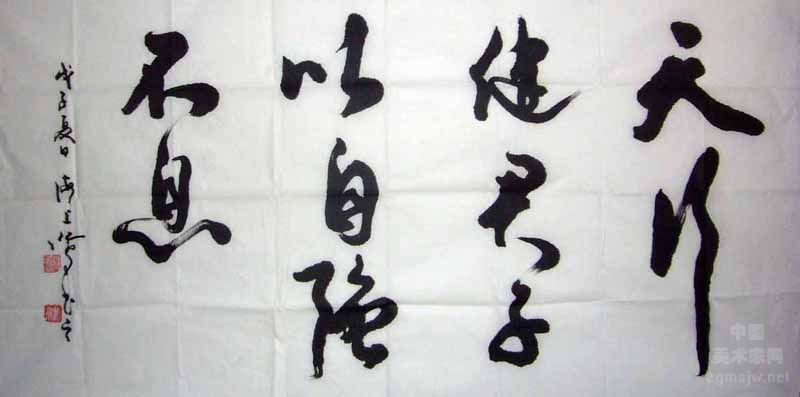 天行
健君子
以自强
不息
戊子夏日 海上
中国
美术家网
zgmsjw.net